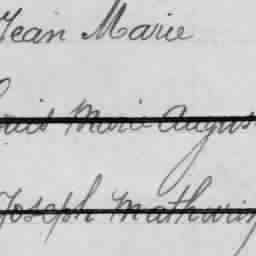 Jean Marie
Louis Marie Augus
Joseph Mathurin